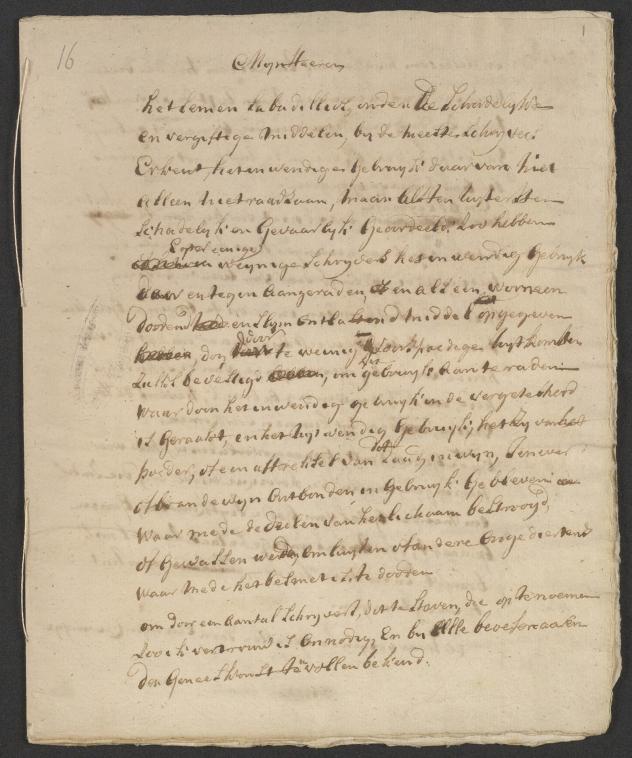 16
1
Mijn Heeren
het Semen Sabadillios, onder de Schadelijke
en vergiftige middelen, bij de meeste Schrijvers
Erkent, het inwendige gebruijk daar van niet
alleen niet raadzaam, maar als ten uijtersten
Schadelijk en Gevaarlijk Geoordeelt. Zoo hebben
weijnige Schrijvers het inwendig Gebruijk
daar en tegen aangeraden, en als een wormen
doodend en Slijm ontlastend middel opgegeven
dog door te weinig voorspoedige uijtkomsten
zulks bevestigd, om gebruijk aan te raden
waar door het inwendig gebruijk in de vergetenheid
is Geraakt, en het uijtwendig Gebruijk, het zij van het
poeder, of een aftrekzel van Laug, in wijn, Jenever
of brandewijn ontbonden in Gebruijk Gebleven
waar mede de deelen van het lichaam bestrooijd,
of Gewassen werden, om luijsen of andere Ongediertens
waar mede het besmet is te dooden
om door een aantal Schrijvers, dit te Staven, die op te noemen
Zoo ik vertrouw is onnodig, En bij alle beoefenaaren
der Geneeskonst ten vollen bekend.